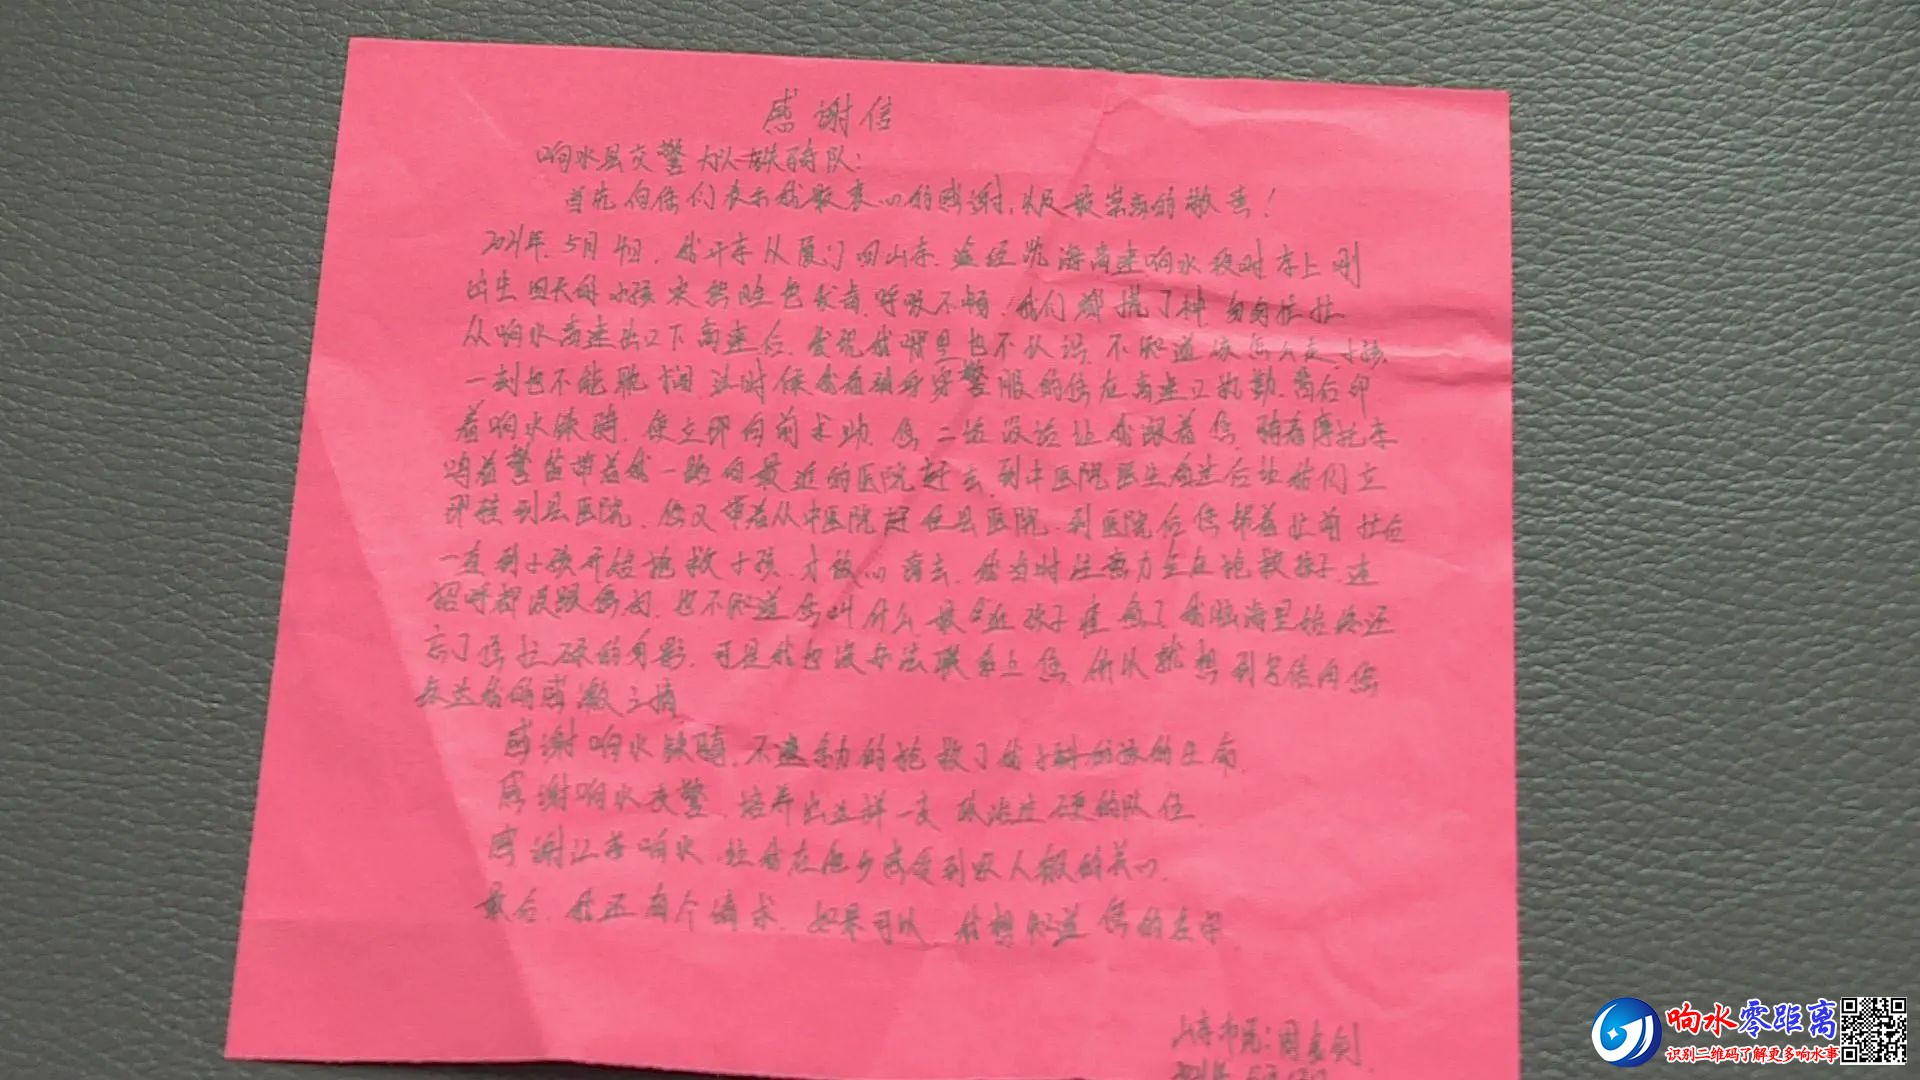 感谢信
响水县交警大队铁骑队：
首先向你们表示我最衷心的感谢，以及最崇高的敬意！
2021年5月4日，我开车从厦门回山东，途经沈海高速响水段时车上刚
出生四天的小孩突然脸色发青，呼吸不畅，我们都慌了神 匆匆忙忙
从响水高速出口下高速后，发现我哪里也不认识，不知道该怎么走，小孩
一刻也不能耽搁，这时候我看到身穿警服的您在高速口执勤，背后印
着响水铁骑，便立即向前求助，您二话没说让我跟着您，骑着摩托车
鸣着警笛带着我一路向最近的医院赶去，到中医院医生看过后让我们立
即转到县医院，您又带着从中医院赶往县医院，到医院后您帮着
一直到小孩开始抢救小孩，才放心离去，我当时注意力全在抢救孩子，连
招呼都没跟您打，也不知道您叫什么，最近孩子痊愈了我脑海里始终还
忘了您 的身影，可是我也没办法联系上您，所以就想到写信向您
表达我的感激之情
感谢响水铁骑，不遗余力的抢救了我 孩的生命，
感谢响水交警，培养出这样一支政治过硬的队伍，
感谢江苏响水，让我在他乡感受到家人般的关心，
最后，我还有个请求，如果可以，我想知道您的名字
山东市民：周 剑
2021年5月
响水零距离
识别二维码了解更多响水事